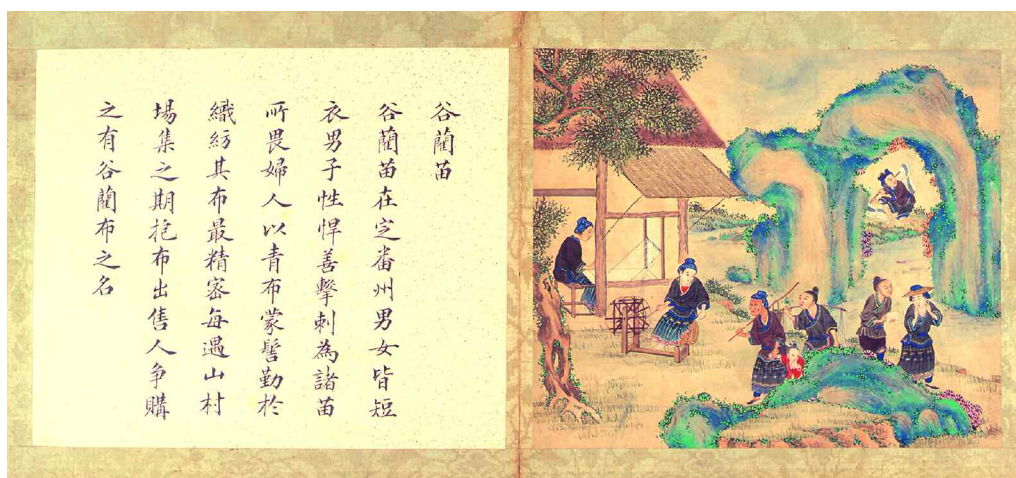 谷藺苗
谷藺苗在定畨州男女皆短
衣男子性悍善擊刺為諸苗
所畏婦人以青布蒙髻勤於
織紡其布最精密每遇山村
場集之期抱布出售人争購
之有谷藺布之名